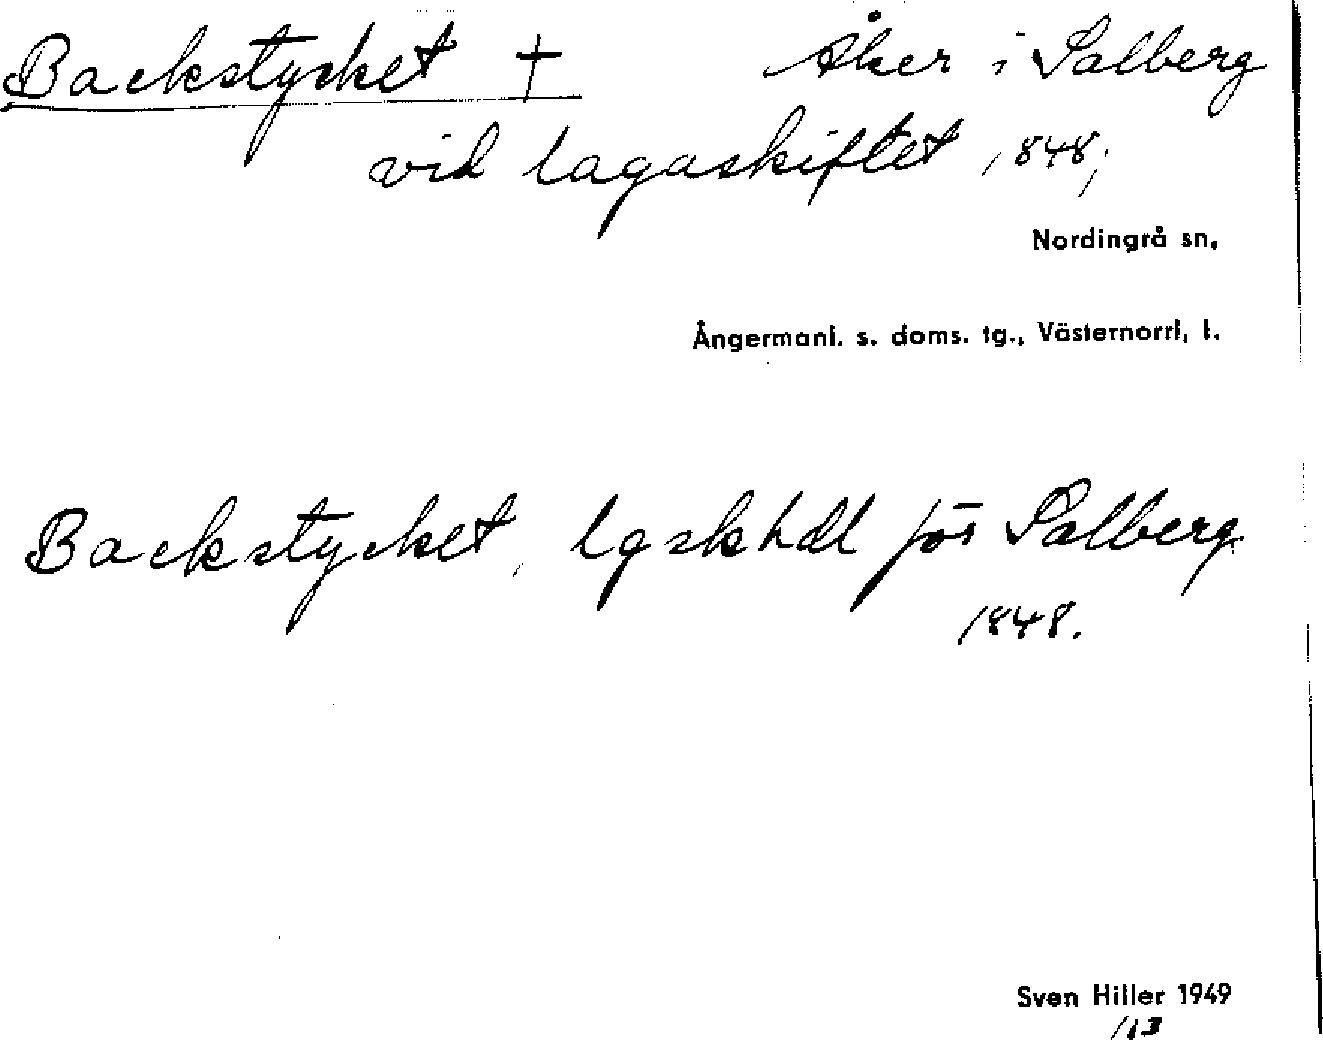 Backstycket † Åker i Salberg
vid lagaskiftet 1848;
Nordingrå sn,
Ångermanl. s. doms. tg., Västernorrl, l.
Backstycket, lgskhdl för Salberg
1848.
Sven Hiller 1949
113